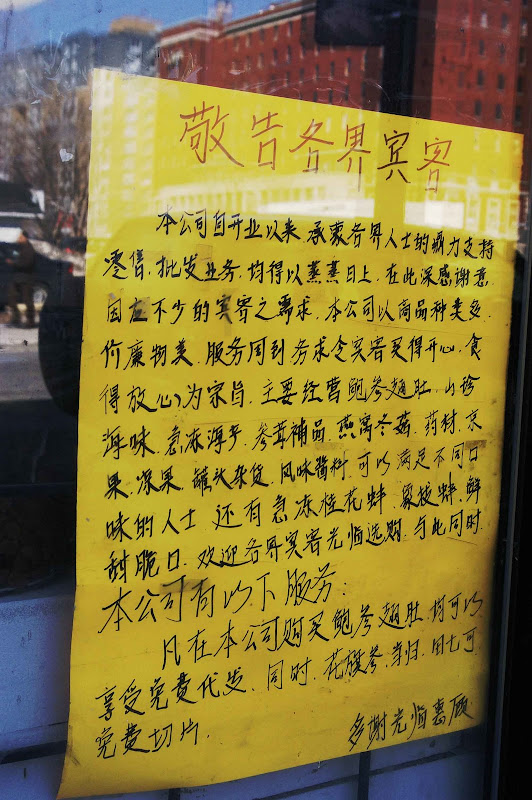 敬告各界宾客
本公司自开业以来，承蒙各界人士的鼎力支持
零售，批发业务，均得以蒸蒸日上，在此深感谢意，
因应不少的宾客之需求，本公司以商品种类多，
价廉物美，服务周到务求令宾客买得开心，食
得放心为宗旨，主要经营鲍参翅肚，山珍
海味，急冻海产，参茸补品，燕窝冬菇，药材，京
果，凉果，罐头杂货，风味酱料，可以满足不同口
味的人士，还有急冻桂花蚌，象拔蚌，鲜
甜脆口，欢迎各界宾客光临选购，与此同时，
本公司有以下服务：
凡在本公司购买鲍参翅肚，均可以
享受免费代发，同时，花旗参，当归，田七可
免费切片，
多谢光临惠顾